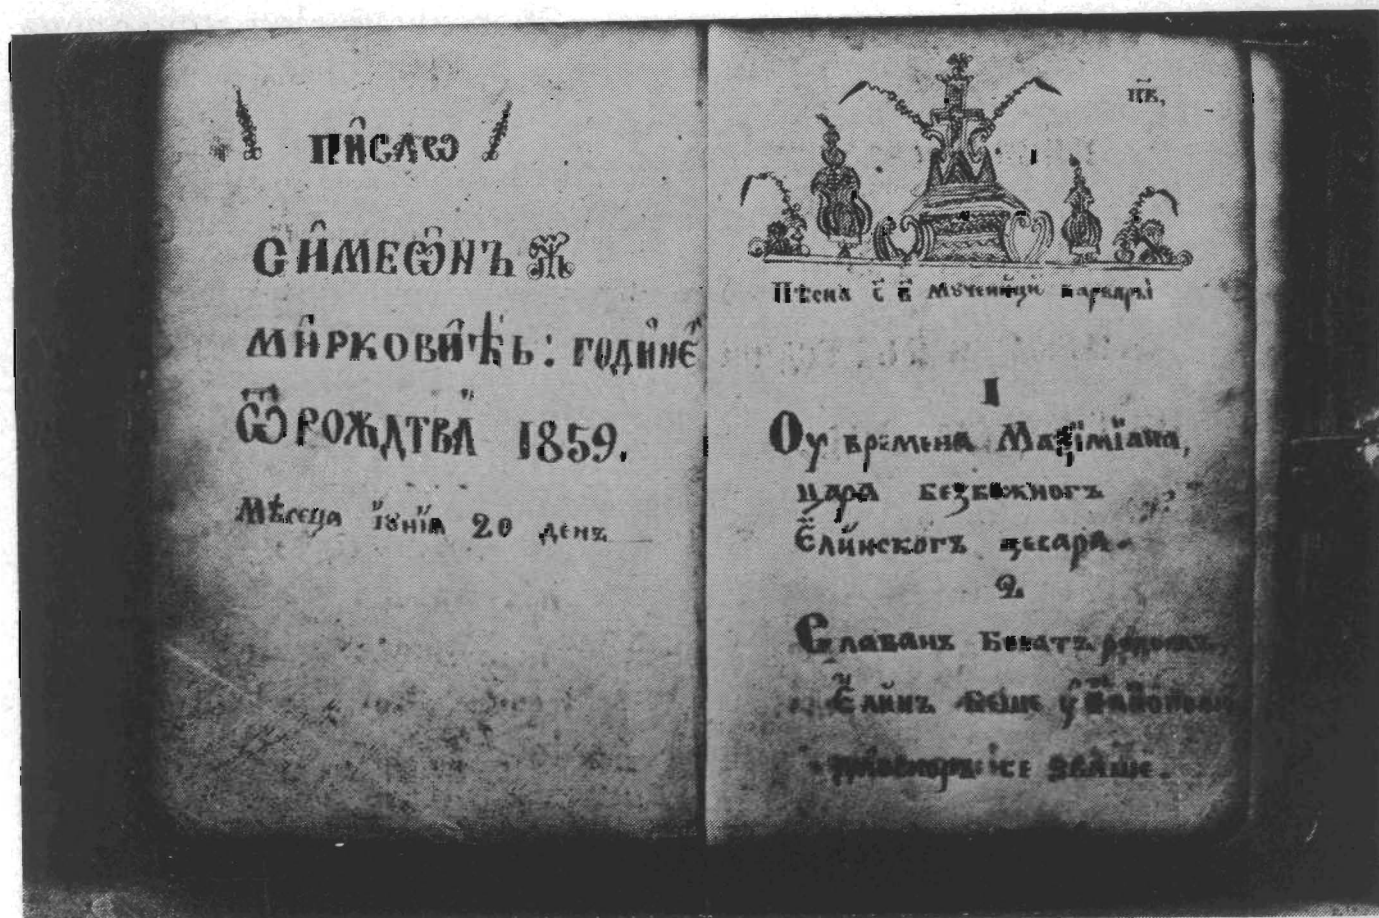 пи̑салѡ
Си̑меѡ̑нъ
Ми̑рковиѣь: године
ѿ рождтва 1859.
Мѣсеца їꙋнїа 20 денъ
цв,
Пѣсна с в мꙋченици варвары
1
Оу времена Маѯїмїана,
цара безбожногъ
Елинскогъ цесара.
2
Славанъ богатъ родомъ
Елинъ беше у
се зваше.